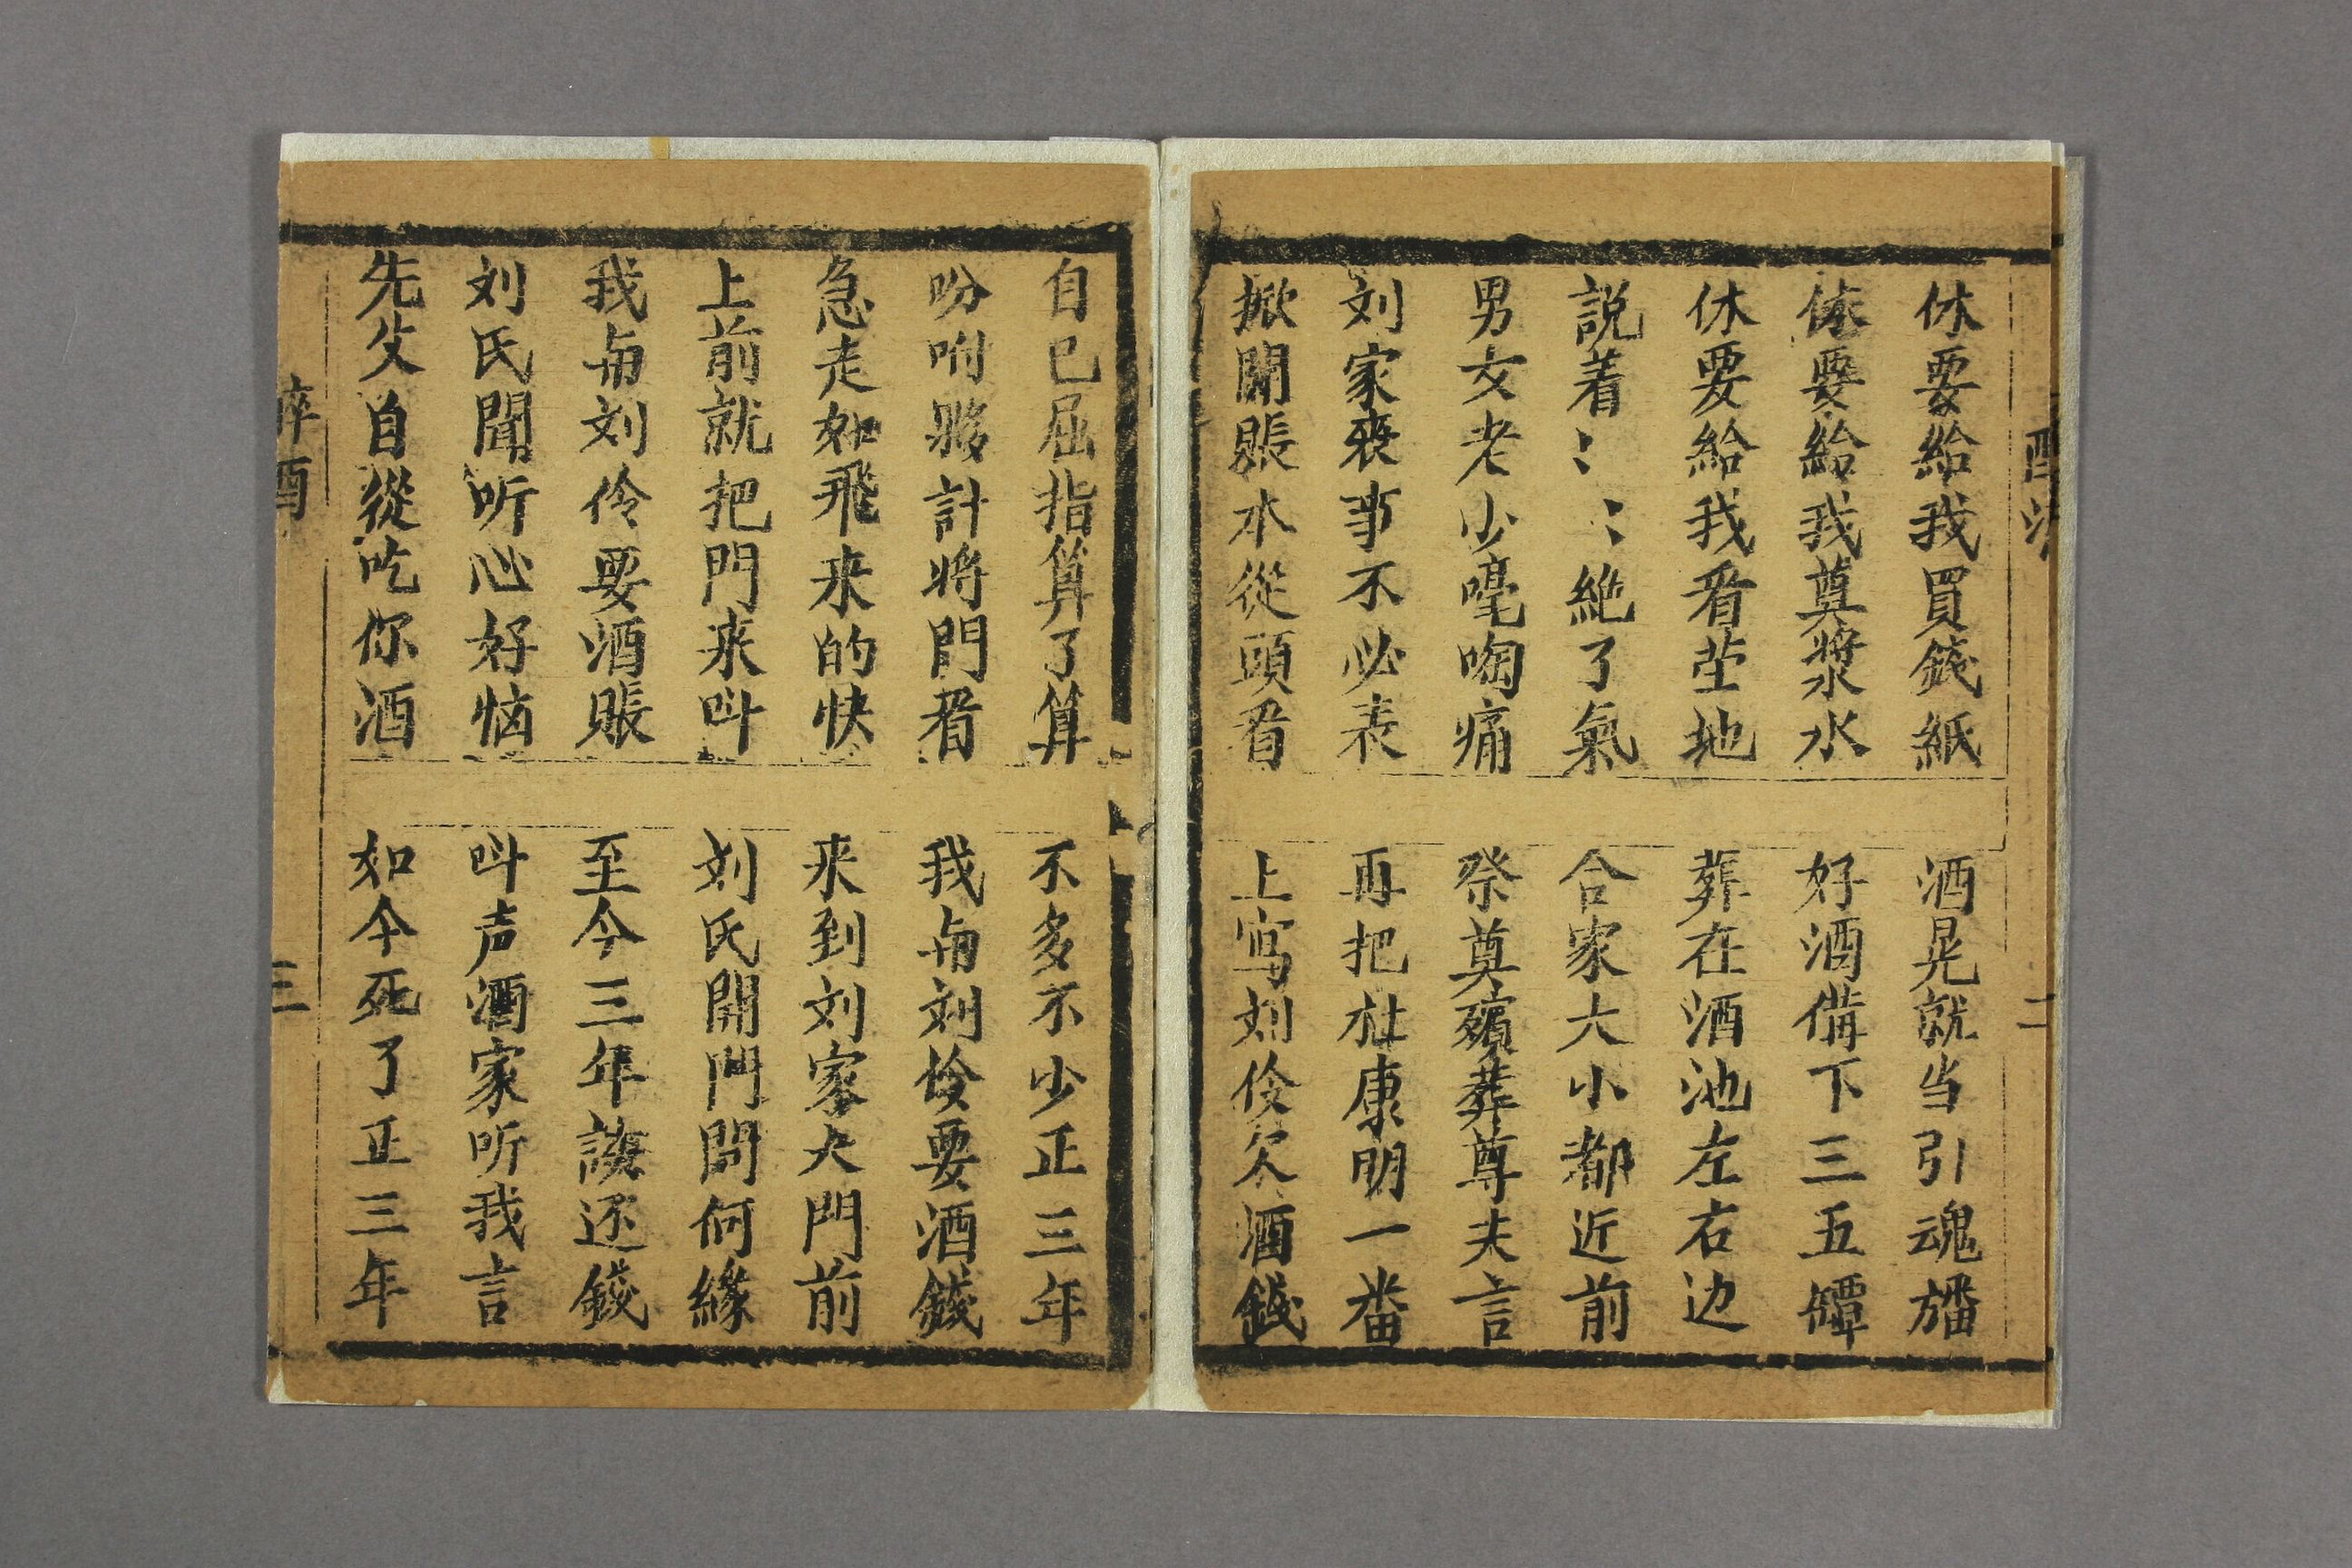 休要給我買錢紙 酒晃就当引魂旛
休要給我奠漿水 好酒備下三五罈
休要給我看茔地 葬在酒池左右边
説着〻〻絶了氣 合家大小都近前
男女老少嚎啕痛 祭奠殯葬尊夫言
刘家丧事不必表 再把杜康明一畨
掀開賬本從頭看 上寫刘伶欠酒錢
二
自己屈指算了算 不多不少正三年
吩咐夥計將門看 我与刘伶要酒錢
急走如飛来的快 来到刘家大門前
上前就把門来叫 刘氏開門問何緣
我与刘伶要酒賬 至今三年該还錢
刘氏聞听心好恼 叫声酒家听我言
先父自從吃你酒 如今死了正三年
三